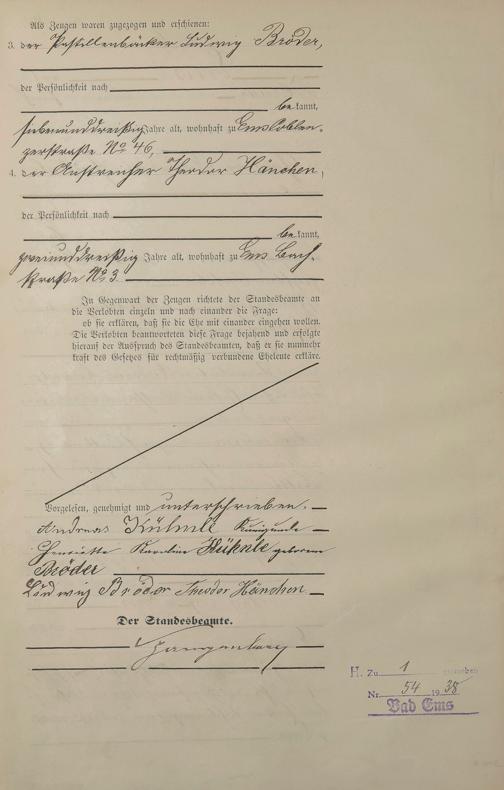 Als Zeugen waren zugezogen und erschienen:
3. der Pastillenbäcker Ludwig Bröder,
der Persönlichkeit nach
be kannt,
siebenunddreißig Jahre alt, wohnhaft zu Ems Coblen-
zerstraße No 46,
4. der Anstreicher Theodor Hänchen,
der Persönlichkeit nach
be kannt,
zweiunddreißig Jahre alt, wohnhaft zu Ems Bach-
straße No 3
In Gegenwart der Zeugen richtete der Standesbeamte an
die Verlobten einzeln und nach einander die Frage:
ob sie erklären, daß sie die Ehe mit einander eingehen wollen.
Die Verlobten beantworteten diese Frage bejahend und erfolgte
hierauf der Ausspruch des Standesbeamten, daß er sie nunmehr
kraft des Gesetzes für rechtmäßig verbundene Eheleute erkläre.
Vorgelesen, genehmigt und unterschrieben.
Andreas Kunigunde
Henriette Karoline geborene
Bröder
Ludwig Bröder Theodor Hänchen
Der Standesbeamte.
H. Zu 1
Nr. 54 1938
Bad Ems